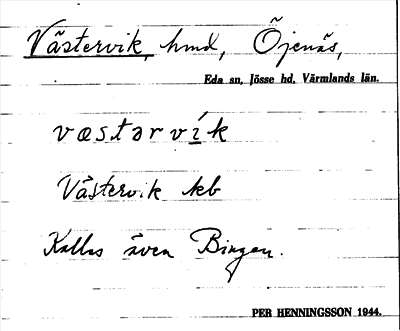 Västervik, hmd, Öjenäs,
Eda sn, Jösse hd, Värmlands län.
væstərvík
Västervik kb
Kallas även Bingen.
PER HENNINGSSON 1944.